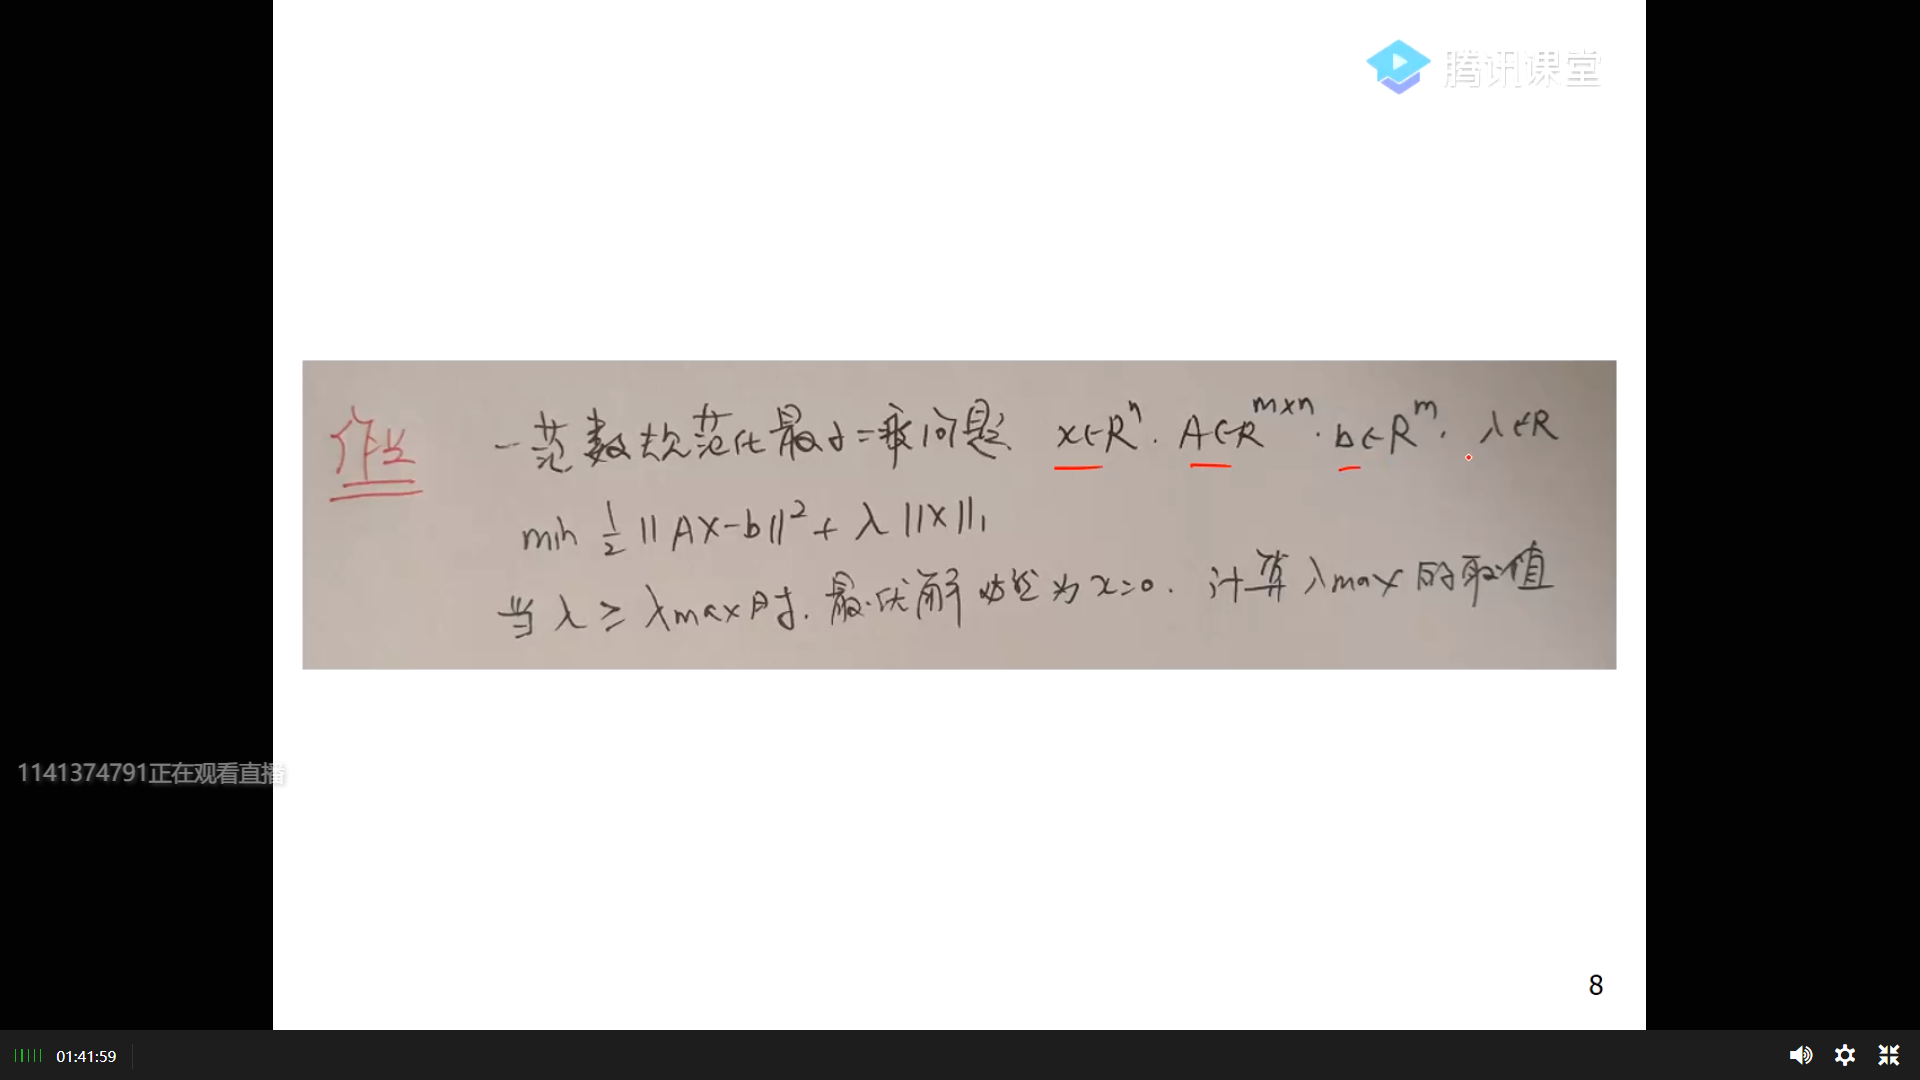 腾讯课堂
作业
一范数规范化最小二乘问题 x∈Rⁿ. A∈R^{m×n}. b∈R^m. λ∈R
min 1/2 ||AX-b||² + λ||X||₁
当 λ ≥ λmax时. 最优解 必定为 x=0. 计算 λmax 的取值
1141374791正在观看直播
8
01:41:59